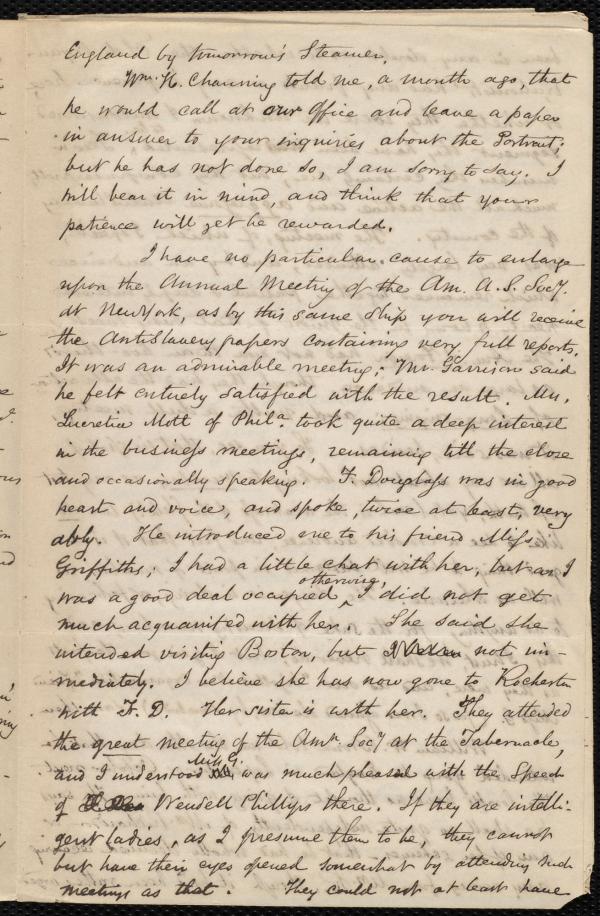 England by tomorrow's Steamer.
Wm. H. Channing told me, a month ago, that
he would call at our Office and leave a paper
in answer to your inquiries about the Portrait;
but he has not done so, I am sorry to say. I
will bear it in mind, and think that your
patience will yet be rewarded.
I have no particular cause to enlarge
upon the Annual Meeting of the Am. A. S. Socy.
at New York, as by this same ship you will receive
the AntiSlavery papers containing very full reports.
It was an admirable meeting; Mr. Garrison said
he felt entirely satisfied with the result. Mrs.
Lucretia Mott of Phila. took quite a deep interest
in the business meetings, remaining till the close
and occasionally speaking. F. Douglass was in good
heart and voice, and spoke, twice at least, very
ably. He introduced me to his friend Miss
Griffiths; I had a little chat with her, but as I
was a good deal occupied otherwise, I did not get
much acquainted with her. She said she
intended visiting Boston, but not im-
mediately. I believe she has now gone to Rochester
with F. D. Her sister is with her. They attended
the great meeting of the Amn. Socy at the Tabernacle,
and I understood Miss G. was much pleased with the Speech
of Wendell Phillips there. If they are intelli-
gent ladies, as I presume them to be, they cannot
but have their eyes opened somewhat by attending such
meetings as that. They could not at least have